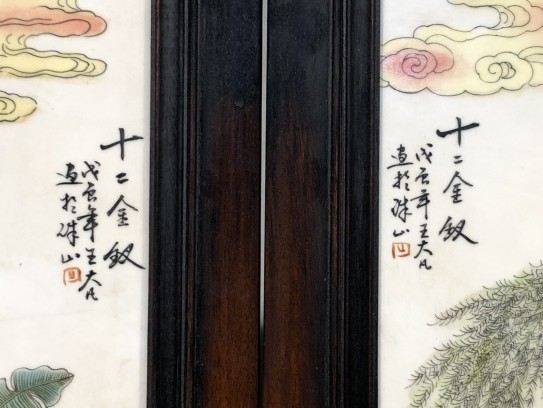 十二金釵
戊辰年王大凡
画於珠山
十二金釵
戊辰年王大凡
画於珠山